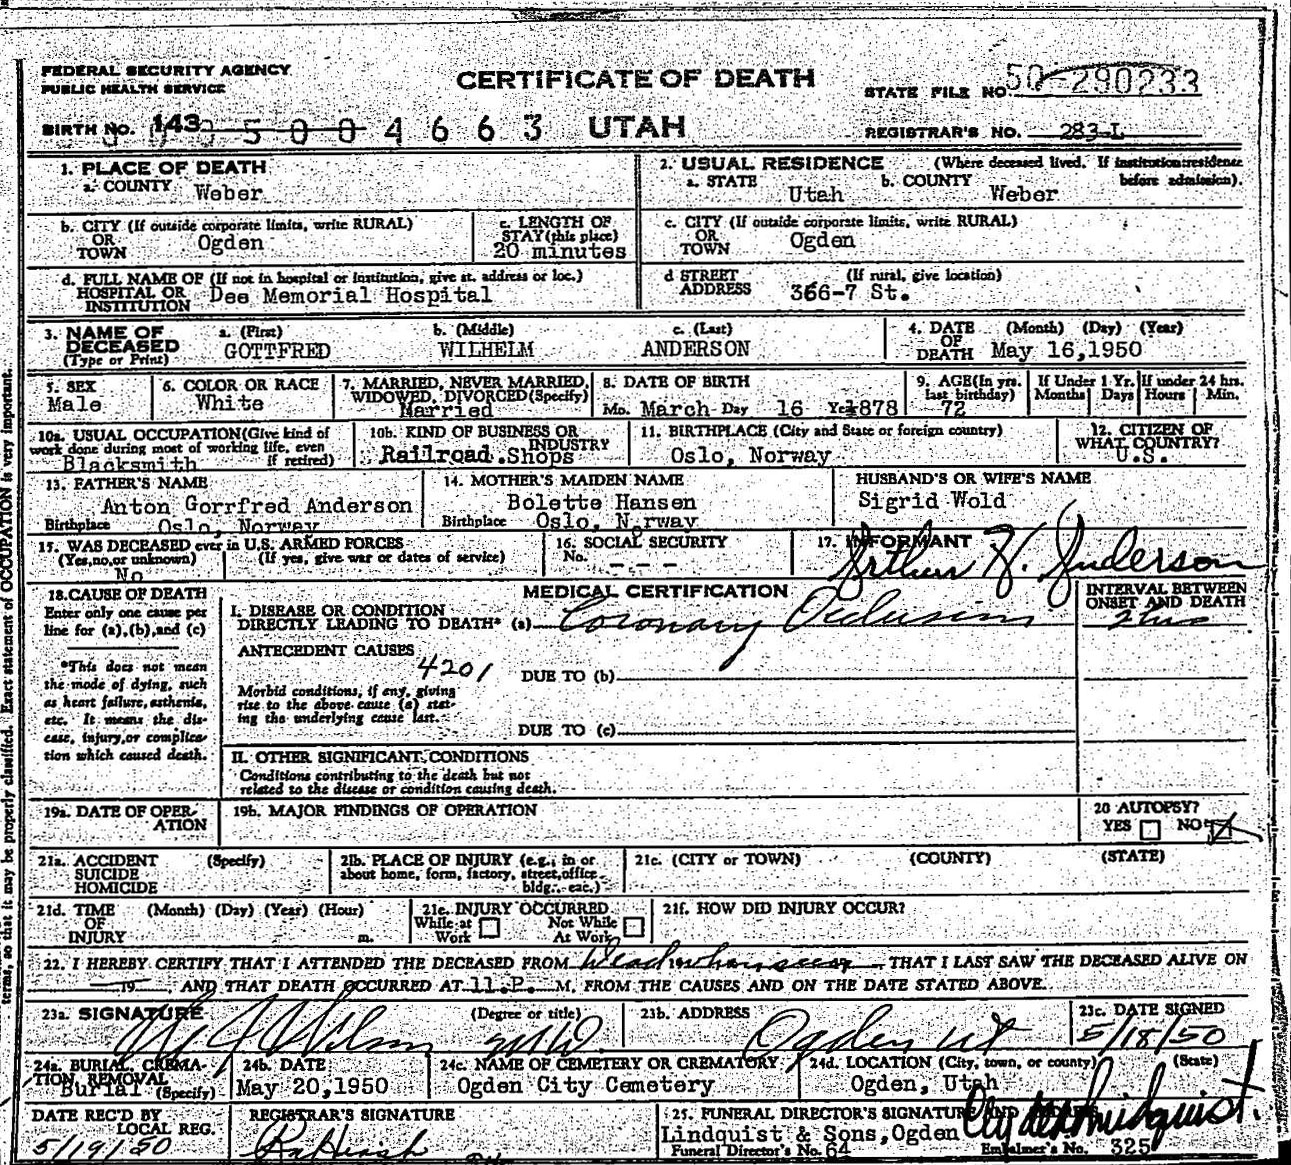 FEDERAL SECURITY AGENCY
PUBLIC HEALTH SERVICE
CERTIFICATE OF DEATH
STATE FILE NO. 50-290233
BIRTH NO. 143 5004663 UTAH
REGISTRAR'S NO. 283-L
1. PLACE OF DEATH
a. COUNTY Weber
2. USUAL RESIDENCE (Where deceased lived. If institution: residence before admission).
a. STATE Utah b. COUNTY Weber
b. CITY (If outside corporate limits, write RURAL) OR TOWN Ogden
c. LENGTH OF STAY (this place) 20 minutes
c. CITY (If outside corporate limits, write RURAL) OR TOWN Ogden
d. FULL NAME OF (If not in hospital or institution, give st. address or loc.) HOSPITAL OR INSTITUTION Dee Memorial Hospital
d STREET ADDRESS (If rural, give location) 366-7 St.
3. NAME OF DECEASED (Type or Print)
a. (First) GOTTFRED
b. (Middle) WILHELM
c. (Last) ANDERSON
4. DATE OF DEATH (Month) (Day) (Year) May 16,1950
5. SEX Male
6. COLOR OR RACE White
7. MARRIED, NEVER MARRIED, WIDOWED, DIVORCED (Specify) Married
8. DATE OF BIRTH Mo. March Day 16 Yr 1878
9. AGE (In yrs. last birthday) 72
If Under 1 Yr. Months Days
If under 24 hrs. Hours Min.
10a. USUAL OCCUPATION (Give kind of work done during most of working life, even if retired) Blacksmith
10b. KIND OF BUSINESS OR INDUSTRY Railroad Shops
11. BIRTHPLACE (City and State or foreign country) Oslo, Norway
12. CITIZEN OF WHAT COUNTRY? U.S.
13. FATHER'S NAME Anton Gorrfred Anderson
Birthplace Oslo, Norway
14. MOTHER'S MAIDEN NAME Bolette Hansen
Birthplace Oslo, Norway
HUSBAND'S OR WIFE'S NAME Sigrid Wold
15. WAS DECEASED ever in U.S. ARMED FORCES (Yes, no, or unknown) (If yes, give war or dates of service) No
16. SOCIAL SECURITY No. - - -
17. INFORMANT Arthur H. Anderson
18. CAUSE OF DEATH
Enter only one cause per line for (a), (b), and (c)
*This does not mean the mode of dying, such as heart failure, asthenia, etc. It means the disease, injury, or complication which caused death.
MEDICAL CERTIFICATION
INTERVAL BETWEEN ONSET AND DEATH
I. DISEASE OR CONDITION DIRECTLY LEADING TO DEATH* (a) Coronary Occlusion 2 hrs
ANTECEDENT CAUSES
4201
Morbid conditions, if any, giving rise to the above cause (a) stating the underlying cause last.
DUE TO (b)
DUE TO (c)
II. OTHER SIGNIFICANT CONDITIONS
Conditions contributing to the death but not related to the disease or condition causing death.
19a. DATE OF OPERATION
19b. MAJOR FINDINGS OF OPERATION
20 AUTOPSY?
YES NO
21a. ACCIDENT SUICIDE HOMICIDE (Specify)
21b. PLACE OF INJURY (e.g., in or about home, form, factory, street, office bldg., eac.)
21c. (CITY or TOWN) (COUNTY) (STATE)
21d. TIME OF INJURY (Month) (Day) (Year) (Hour) m.
21e. INJURY OCCURRED
While at Work Not While At Work
21f. HOW DID INJURY OCCUR?
22. I HEREBY CERTIFY THAT I ATTENDED THE DECEASED FROM Dead when seen, THAT I LAST SAW THE DECEASED ALIVE ON
19 , AND THAT DEATH OCCURRED AT 11.P. M, FROM THE CAUSES AND ON THE DATE STATED ABOVE.
23a. SIGNATURE Wilson (Degree or title) MD
23b. ADDRESS Ogden Ut
23c. DATE SIGNED 5/18/50
24a. BURIAL, CREMATION, REMOVAL (Specify) Burial
24b. DATE May 20,1950
24c. NAME OF CEMETERY OR CREMATORY Ogden City Cemetery
24d. LOCATION (City, town, or county) (State) Ogden, Utah
DATE REC'D BY LOCAL REG. 5/19/50
REGISTRAR'S SIGNATURE
25. FUNERAL DIRECTOR'S SIGNATURE AND
Lindquist & Sons, Ogden Clyde Lindquist.
Funeral Director's No. 64 Embalmer's No. 325
terms, so that it may be properly classified. Exact statement of OCCUPATION is very important.